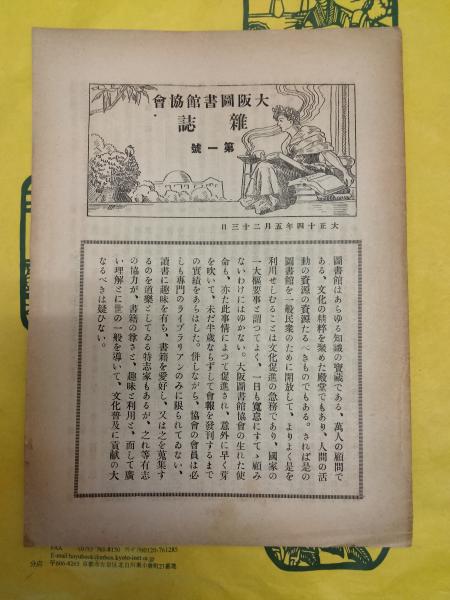 大阪圖書館協會
雜誌
第一號
大正十四年五月二十三日
圖書館はあらゆる知識の寶藏である、萬人の顧問で
ある、文化の精粹を聚めた殿堂でもあり、人間の活
動の資源の資源たるべきものでもある。されば是の
圖書館を一般民衆のために開放して、よりよく是を
利用せしむることは文化促進の急務であり、國家の
一大樞要事と謂つてよく、一日も寛怠にすてゝ顧み
ないわけにはゆかない。大阪圖書館協會の生れた使
命も、亦た此事情によつて促進され、意外に早く芽
を吹いて、未だ半歳ならずして會報を發刊するまで
の實績をあらはした。併しながら、協會の會員は必
しも專門のライブラリアンのみに限られてゐない、
讀書に趣味を有ち、書籍を愛好し、又は之を蒐集す
るのを道樂としてゐる特志家もあるが、之れ等有志
の協力が、書籍の尊さと、趣味と利用と、而して廣
い理解とに世の一般を導いて、文化普及に貢献の大
なるべきは疑ひない。
FAX (075) 761-8150 ﾌﾘﾀﾞｲ0120-761285
E-mail hoyubook@mbox.kyoto-inet.or.jp
分店 〒606-8265 京都市左京区北白川東小倉町21番地